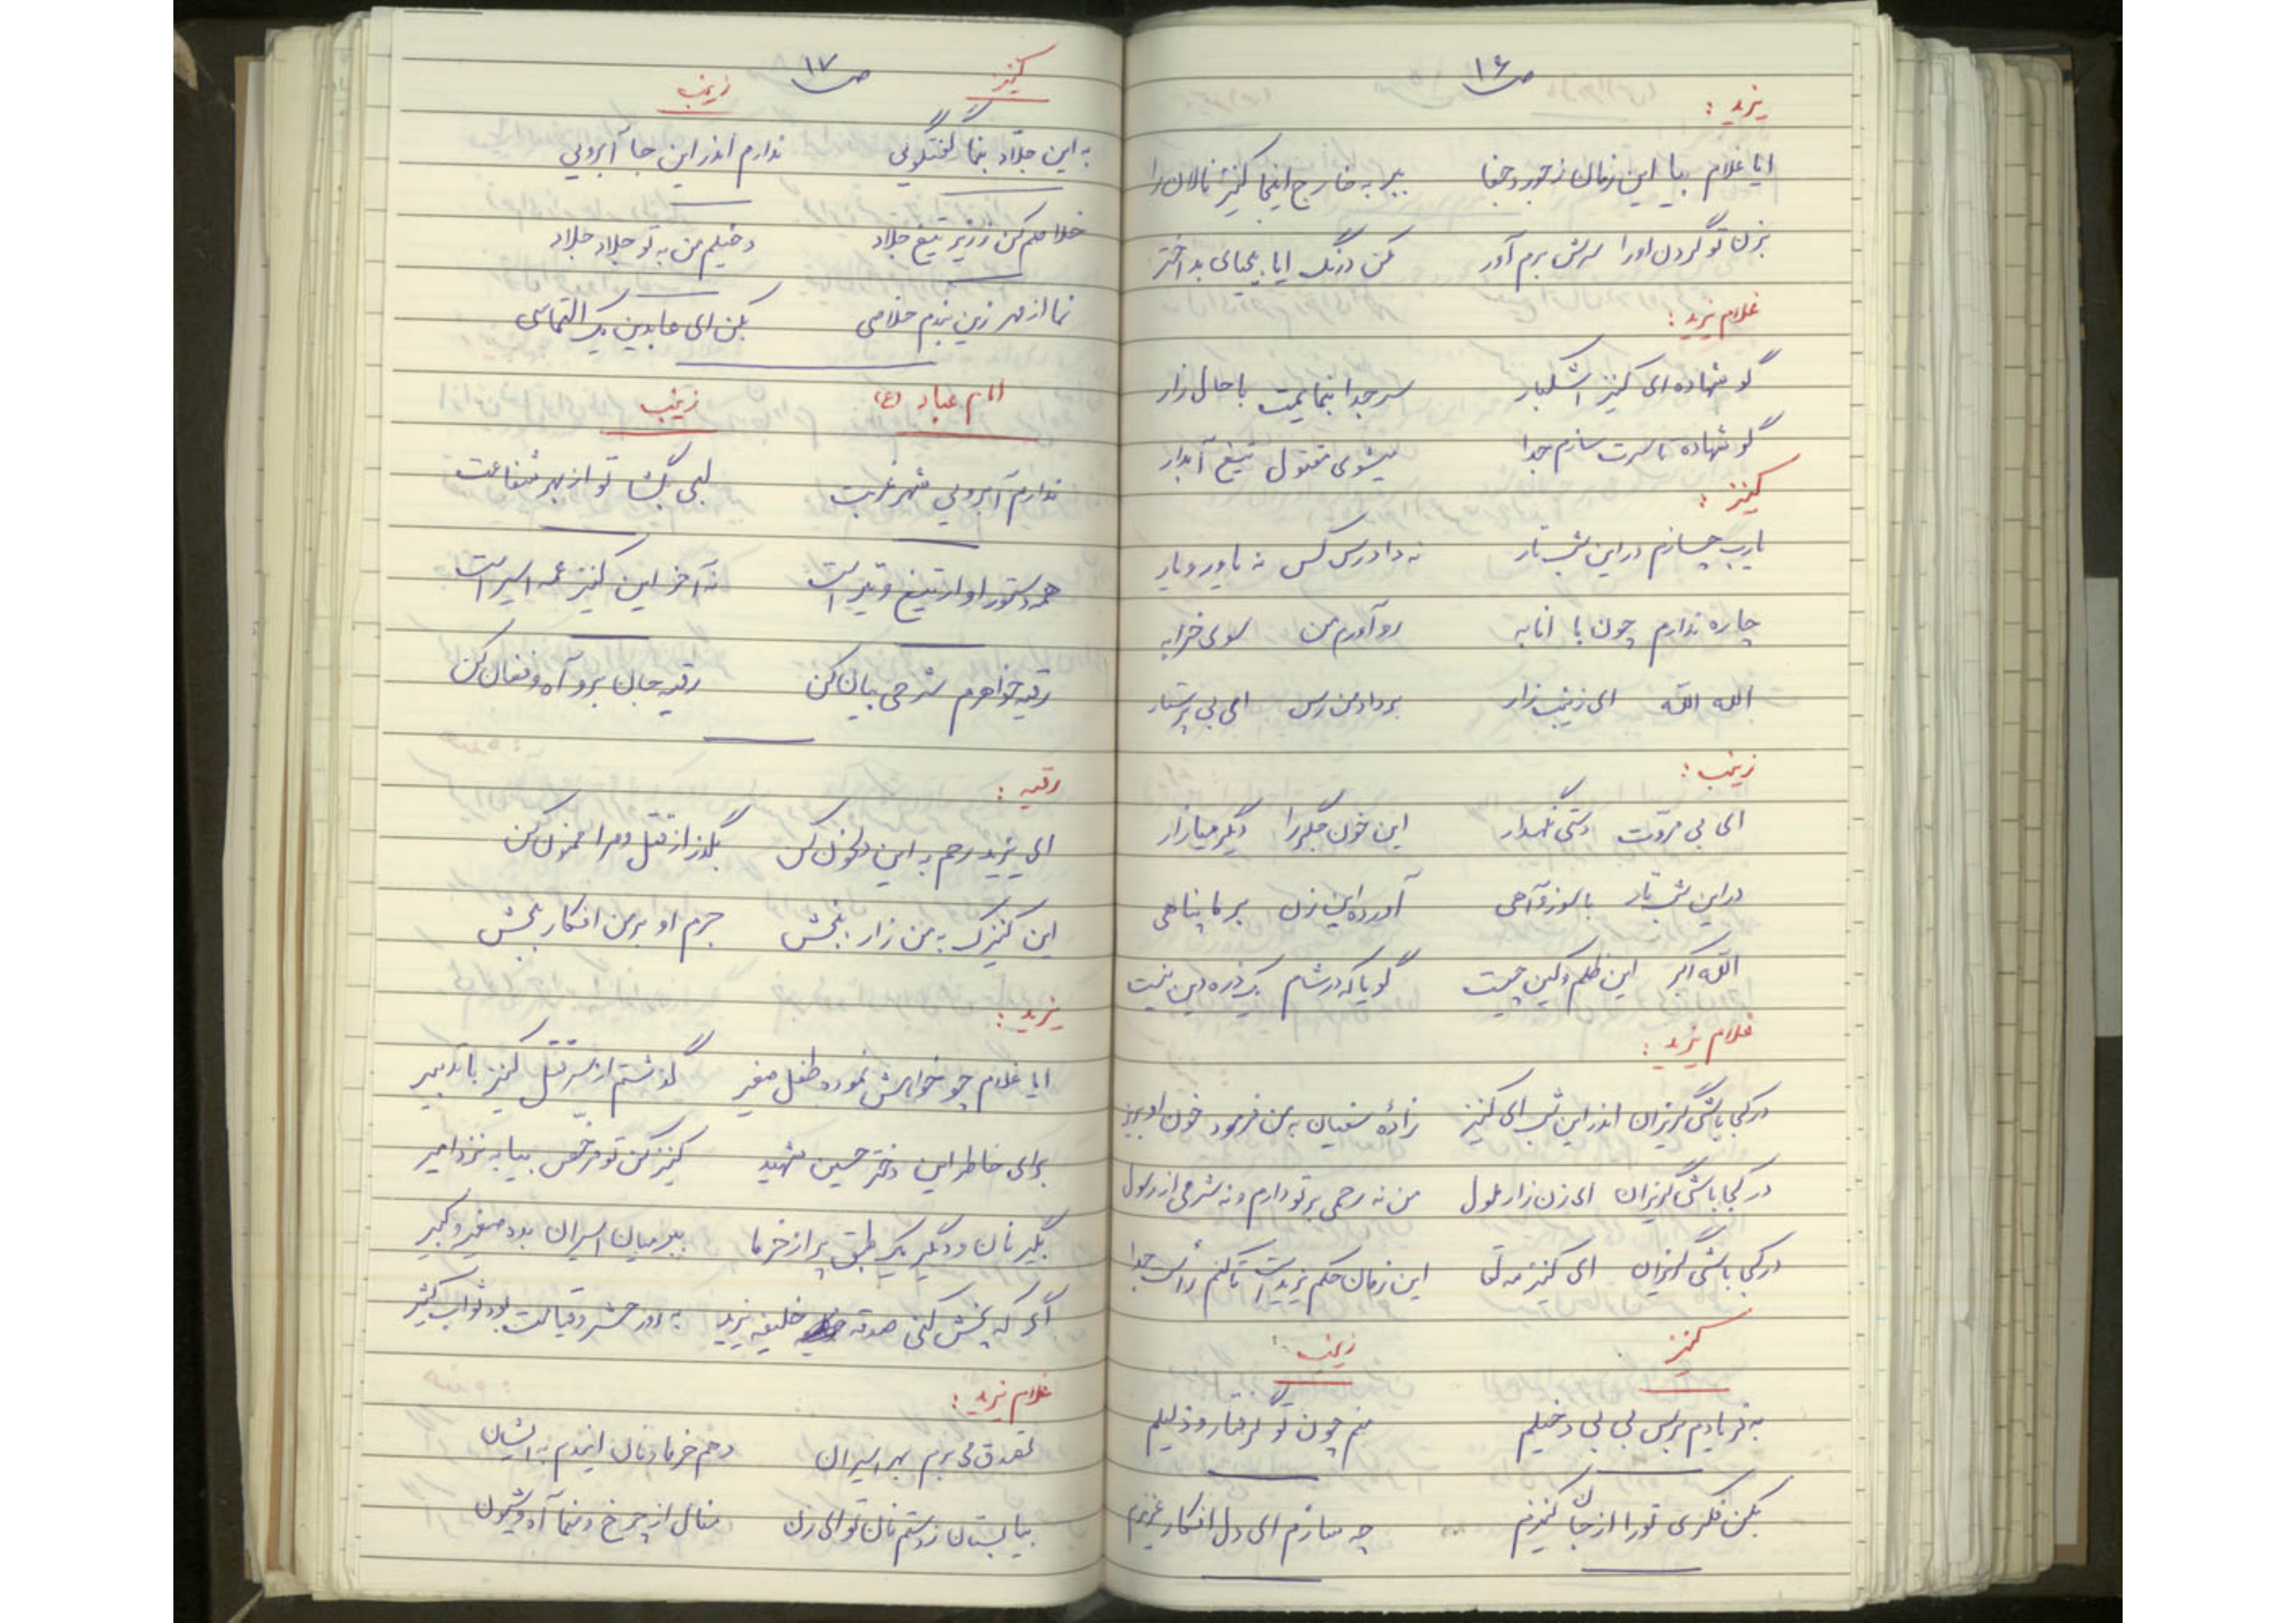 ص۱۶
یزید :
ایا غلام بیا این زمان ز جور و جفا ببر به خارج اینجا کنیز نالان را
بزن تو گردن او را سرش برم آور مکن درنگ ایا بی‌حیای بد اختر
غلام یزید :
گو شهاده ای کنیز اشکبار سر جدا بنمایمت با حال زار
گو شهاده تا سرت سازم جدا میشوی مقتول تیغ آبدار
کنیز :
یا رب چسازم در این شب تار نه دادرس کس نه یاور و یار
چاره ندارم چون با انابه رو آورم من سوی خرابه
الله الله ای زینب زار بر داد من رس ای بی پرستار
زینب :
ای بی مروّت دستی نگهدار این خون جگر را دیگر میازار
در این شب تار با سوز و آهی آورده این زن بر ما پناهی
الله اکبر این ظلم و کین چیست گویا که در شام یک ذره دین نیست
غلام یزید :
در کجا باشی گریزان اندر این شب ای کنیز زادهٔ سفیان به من فرمود خون او بریز
در کجا باشی گریزان ای زن زار ملول من نه رحمی بر تو دارم و نه شرمی از رسول
در کجا باشی گریزان ای کنیز مه لقا این زمان حکم یزید است تا کنم رأست جدا
کنیز زینب :
به فریادم برس بی بی دخیلم منم چون تو گرفتار و ذلیلم
بکن فکری تو را از جان کنیزم چه سازم ای دل افکار عزیزم
ص۱۷
کنیز زینب
به این جلاد بنما گفتگوئی ندارم اندر این جا آبروئی
خلاصم کن ز زیر تیغ جلاد دخیلم من به تو جلاد جلاد
نما از مهر زین بندم خلاصی بکن ای عابدین یک التماسی
امام عباد (ع) زینب
ندارم آبرویی شهر غربت لبی بگشا تو از بهر شفاعت
همه دستور او از تیغ و تیر است نه آخر این کنیز عمه اسیر است
رقیه خواهرم شرحی بیان کن رقیه جان برو آه و فغان کن
رقیه :
ای یزید رحم به این دلخون کن بگذر از قتل و مرا ممنون کن
این کنیزک به من زار ببخش جرم او بر من افکار ببخش
یزید :
ایا غلام چو خواهش نموده طفل صغیر گذشتم از سر قتل کنیز با تدبیر
برای خاطر این دختر حسین شهید کنیز کن تو مرخص بیا به نزد امیر
بگیر نان و دیگر یک طبق پر از خرما ببر میان اسیران بده صغیر و کبیر
اگر که پخش کنی صدقه خلیفه یزید به روز حشر و قیامت بود ثواب کثیر
غلام یزید :
تصدق می برم بهر اسیران دهم خرما و نان ایندم به ایشان
بیا بستان ز دستم نان تو ای زن منال از چرخ و منما آه و شیون